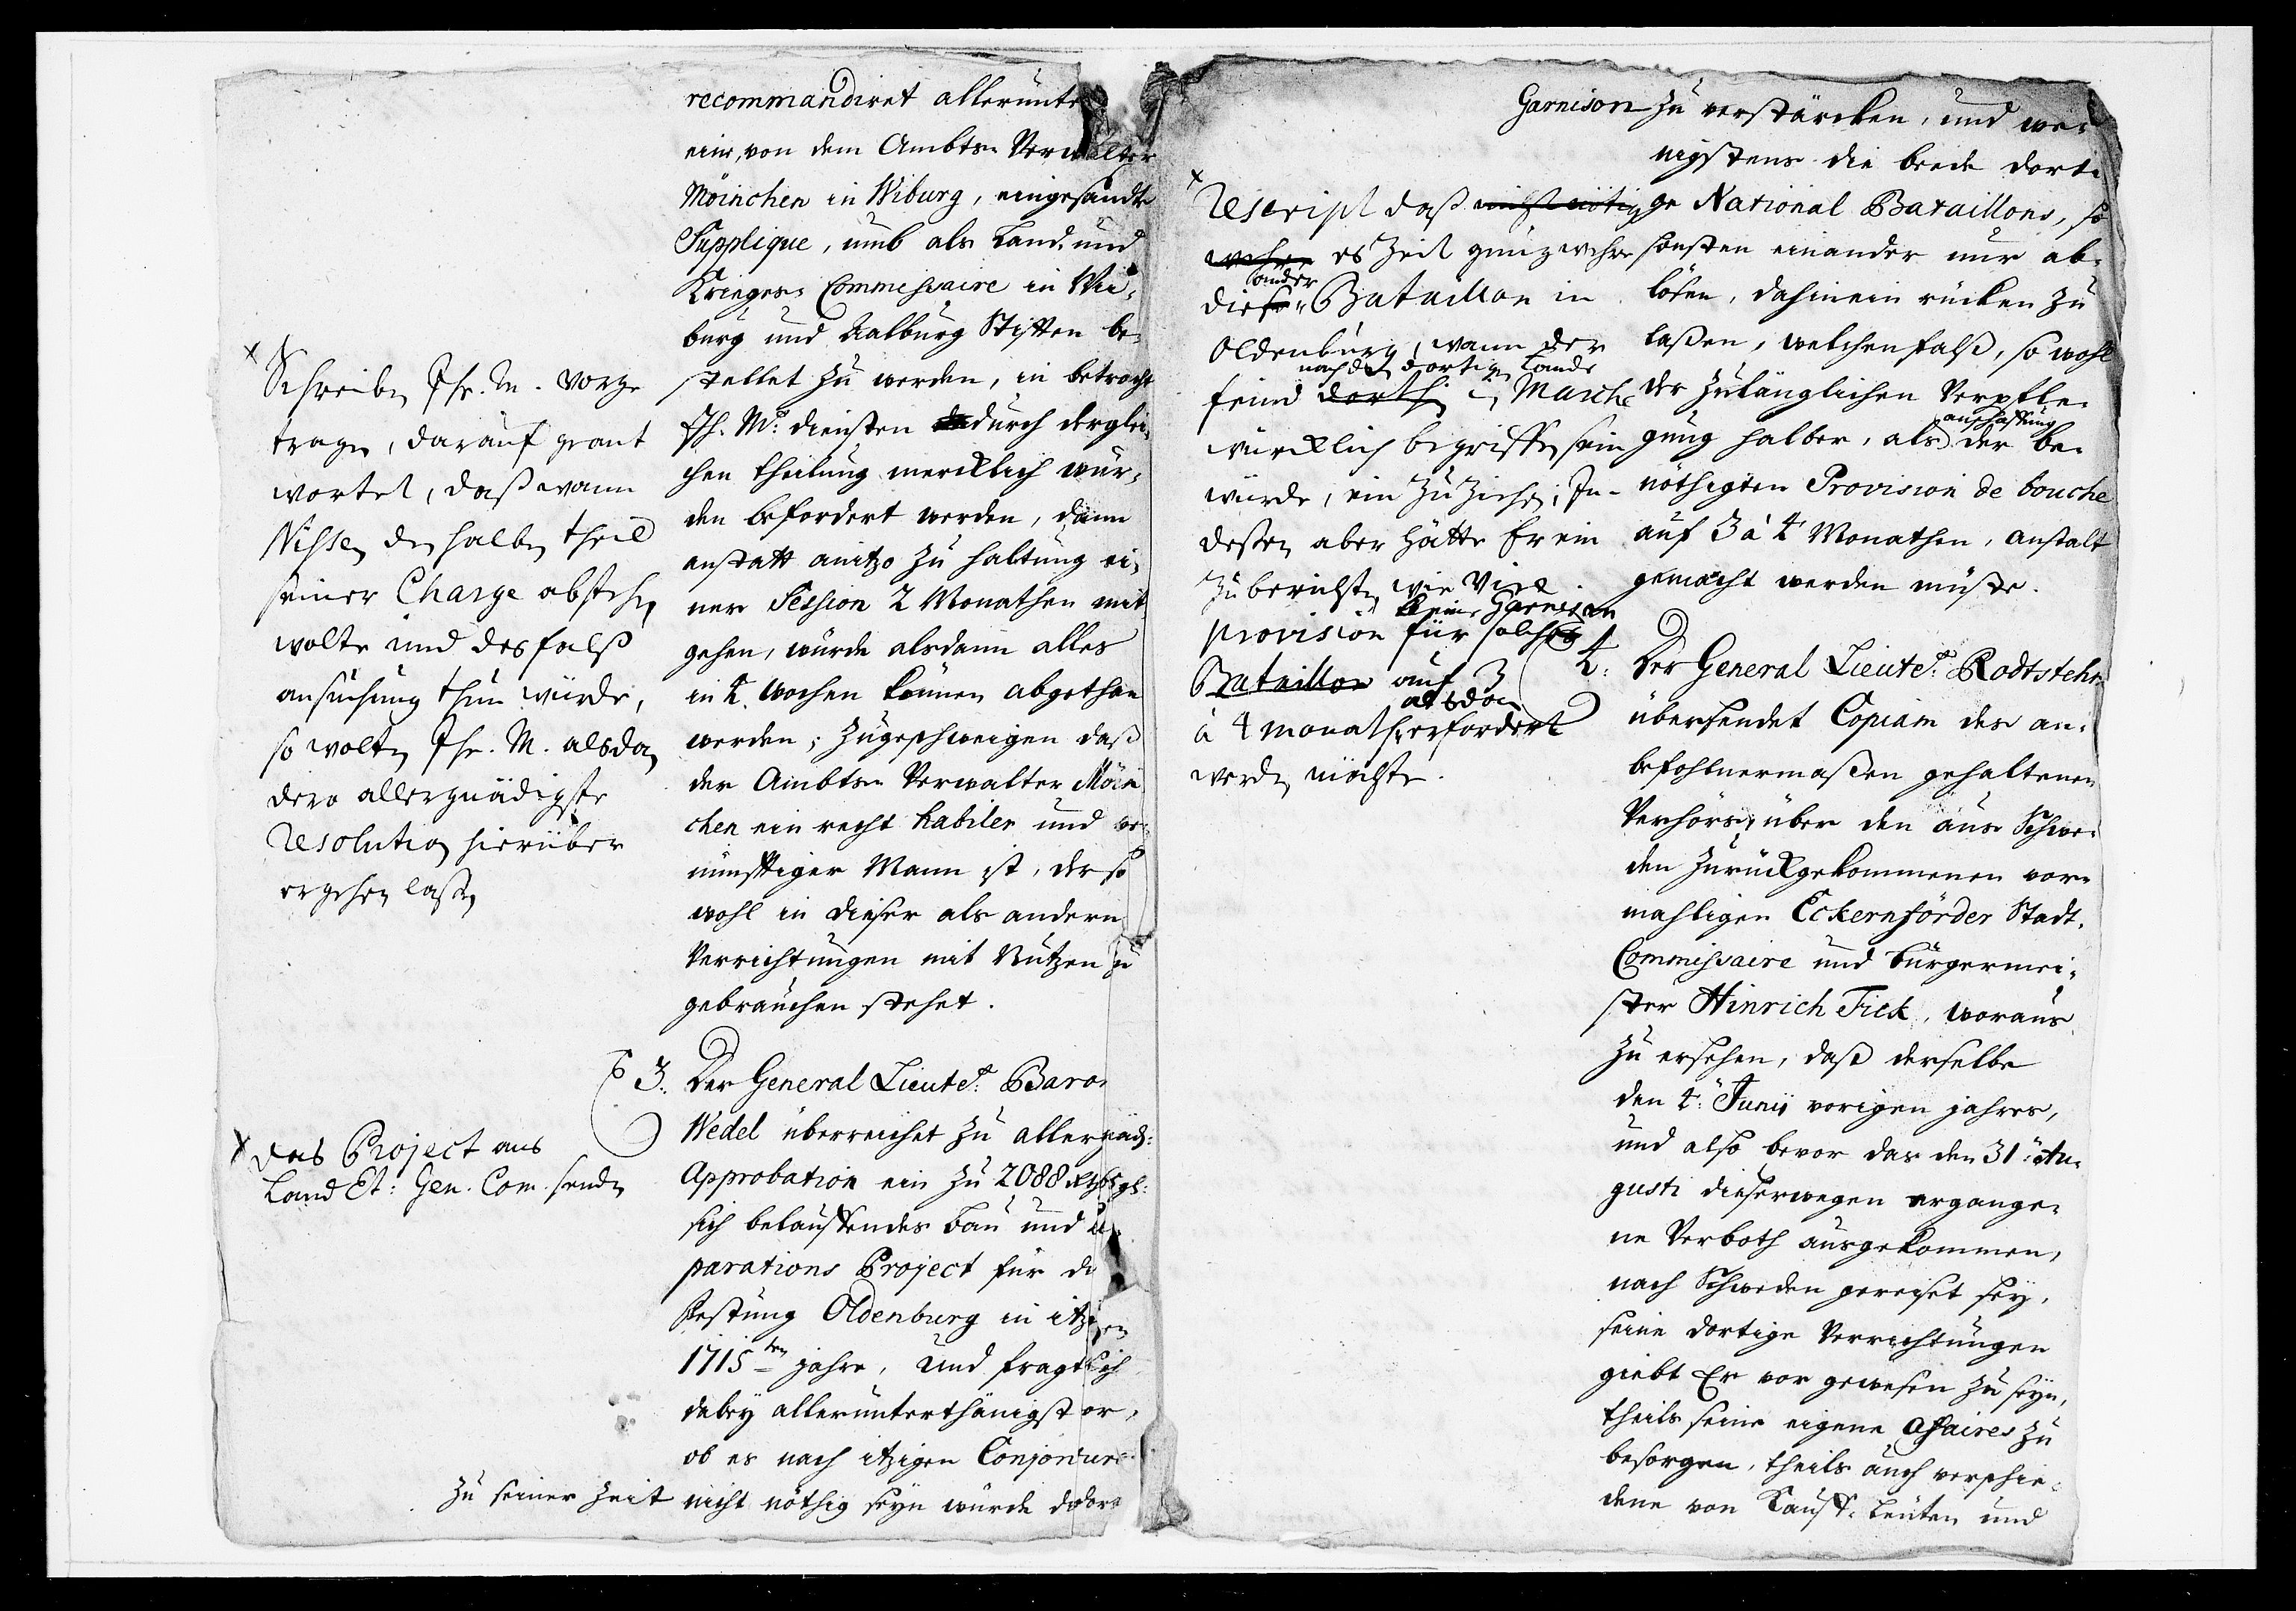 recommandiret allerunte
eine, von dem Ambts- Verwalter
Möinchen in Wiburg, eingesandte
Supplique, umb als Land- und
Krieges- Commissaire in Wi-
burg und Aalburg Stifften be-
stellet zu werden, in betracht
Ih. Mt: diensten durch derglei-
chen theilung mercklich wür-
den befordert werden, dann
anstatt anitzo zu haltung ei-
ner Session 2 Monathen mit
gehen, würde alsdann alles
in 4. Wochen können abgethan
werden; Zugeschweigen daß
der Ambts- Verwalter Möin
chen ein recht habiler und ver-
nünfftiger Mann ist, der so
wohl in dieser als andern
Verrichtungen mit Nutzen zu
gebrauchen stehet.
x
Schreiben Ihr. M. vorge
tragen, darauf geant
wortet, daß wann
Nissen den halben theil
seiner Charge abstehen
wolte und desfalß
ansuchung thun würde,
so wolten Ihr. M. alsdan
dero allergnädigste
resolution hierüber
ergehen lassen
3. Der General Lieutet: Baron
Wedel überreichet zu allergnäds:
Approbation ein zu 2088 Rthl
sich belauffendes Bau und Re-
parations Project für die
Festung Oldenburg in itzigen
1715ten Jahre, und fragt sich
dabey allerunterthänigst vor,
ob es nach itzigen Conjoncture
zu seiner Zeit nicht nöthig seyn würde die dor
x das Project ans
Land Et: Gen. Com. senden
Garnison zu verstärcken, und we-
nigstens die beede dorti-
ge National Bataillons, so
sonsten einander nur ab-
lösen, dahinein rücken zu
laßen, welchenfalß, so wohl
der zulänglichen Verpfle-
gung halber, als anschaffung der be-
nöthigten Provision de bouche
auf 3 à 4 Monathen, anstalt
gemacht werden müste.
x
Rescript daß nicht nötig
wehre es Zeit genug wehre
diese ander Bataillon in
Oldenburg, wann der
feind dorthin nach den dortigen Lande in March
würcklich begriffen sein
würde, ein zu ziehen; In-
deßen aber hätte Er ein
zu berichten wie viel
provision für solches seine Garnison
Bataillon auf 3
à 4 monathen alsdan erfordert
werden möchte.
4: Der General Lieutet: Rodtsteh
übersendet Copiam des an-
befohlnermaßen gehaltenen
Verhörs, über den aus Schwe-
den zurückgekommenen vor-
mahligen Eckernförder Stadt-
Commissaire und Bürgermei-
ster Hinrich Fick, woraus
zu ersehen, daß derselbe
den 4: Junii vorigen jahres,
und also bevor das den 31: Au-
gusti dieserwegen ergange-
ne Verboth ausgekommen,
nach Schweden gereiset sey,
seine dortige Verrichtungen
giebt Er vor gewesen zu seyn,
theils seine eigene Affaires zu
besorgen, theils auch verschie-
dene von Kauff- Leuten und